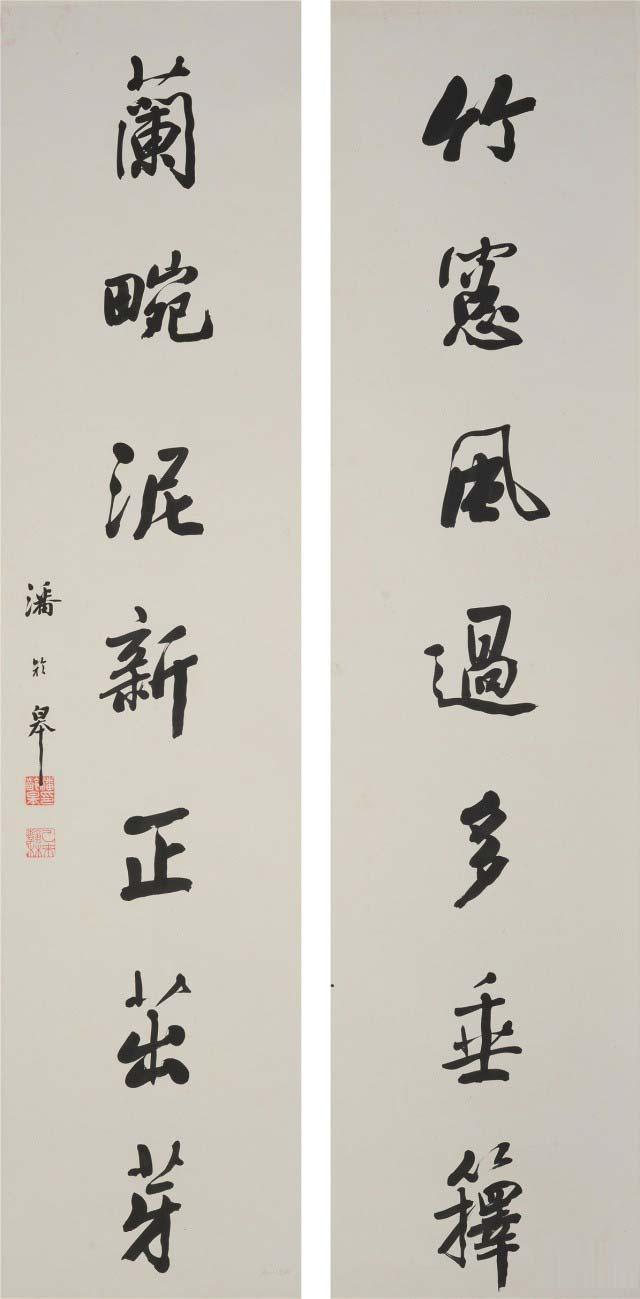 竹窓風過多垂籜
蘭畹泥新正茁芽
潘齡皋